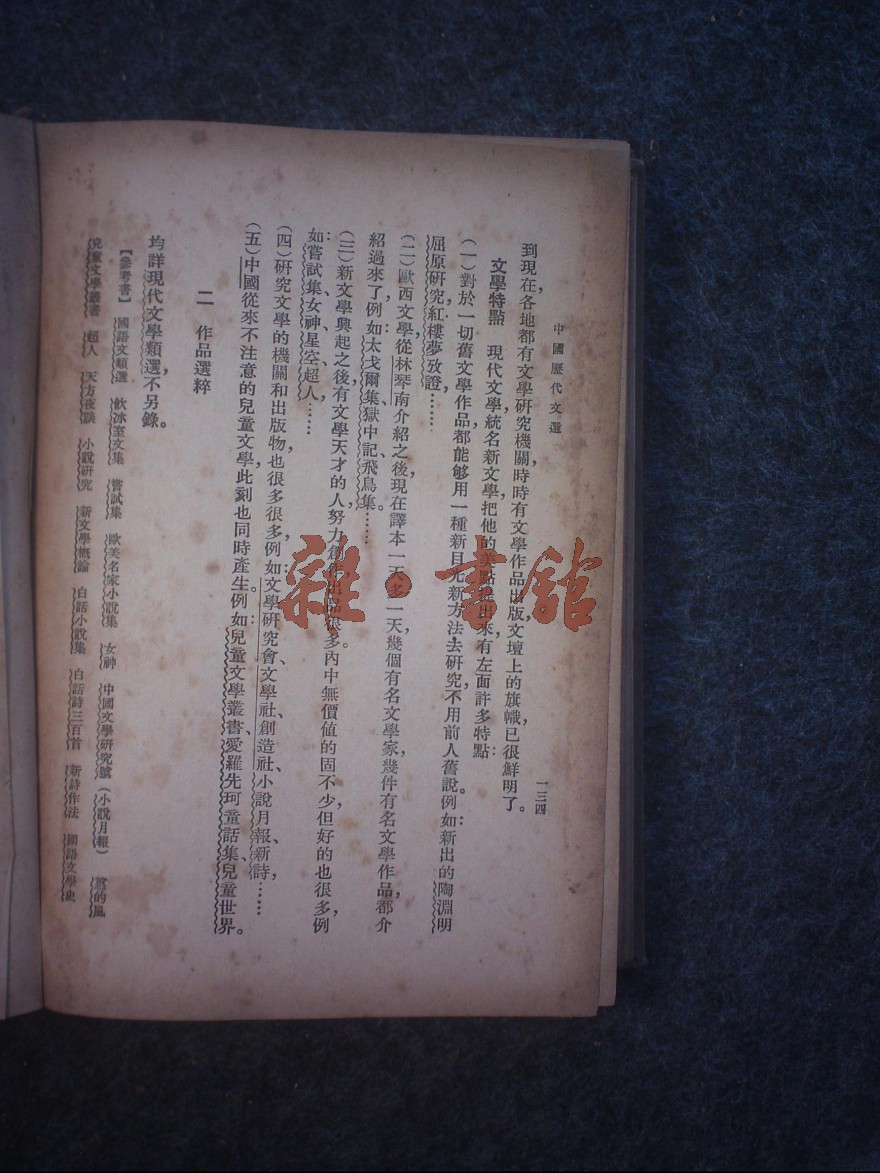 中國歷代文選
一三四
到現在，各地都有文學研究機關，時時有文學作品出版，文壇上的旗幟，已很鮮明了。
文學特點　現代文學統名新文學，把他的美點提出來，有左面許多特點：
（一）對於一切舊文學作品，都能够用一種新目光，新方法，去研究，不用前人舊說。例如新出的陶淵明
屈原研究，紅樓夢攷證，……
（二）歐西文學，從林琴南介紹之後，現在譯本一天多一天，幾個有名文學家，幾件有名文學作品，都介
紹過來了，例如：太戈爾集，獄中記，飛鳥集。……
（三）新文學興起之後，有文學天才的人，努力創作，出品很多。內中無價值的固不少，但好的也很多，例
如：嘗試集、女神、星空、超人、……
（四）研究文學的機關和出版物也很多很多，例如：文學研究會、文學社、創造社、小說月報、新詩，……
（五）中國從來不注意的兒童文學，此刻也同時產生。例如：兒童文學叢書、愛羅先珂童話集、兒童世界。
二　作品選粹
均詳現代文學類選，不另錄。
【參考書】　國語文類選　飲冰室文集　嘗試集　歐美名家小說集　女神　中國文學研究號（小說月報）　蕙的風
兒童文學叢書　超人　天方夜談　小說研究　新文學概論　白話小說集　白話詩三百首　新詩作法　國語文學史
雜·書館